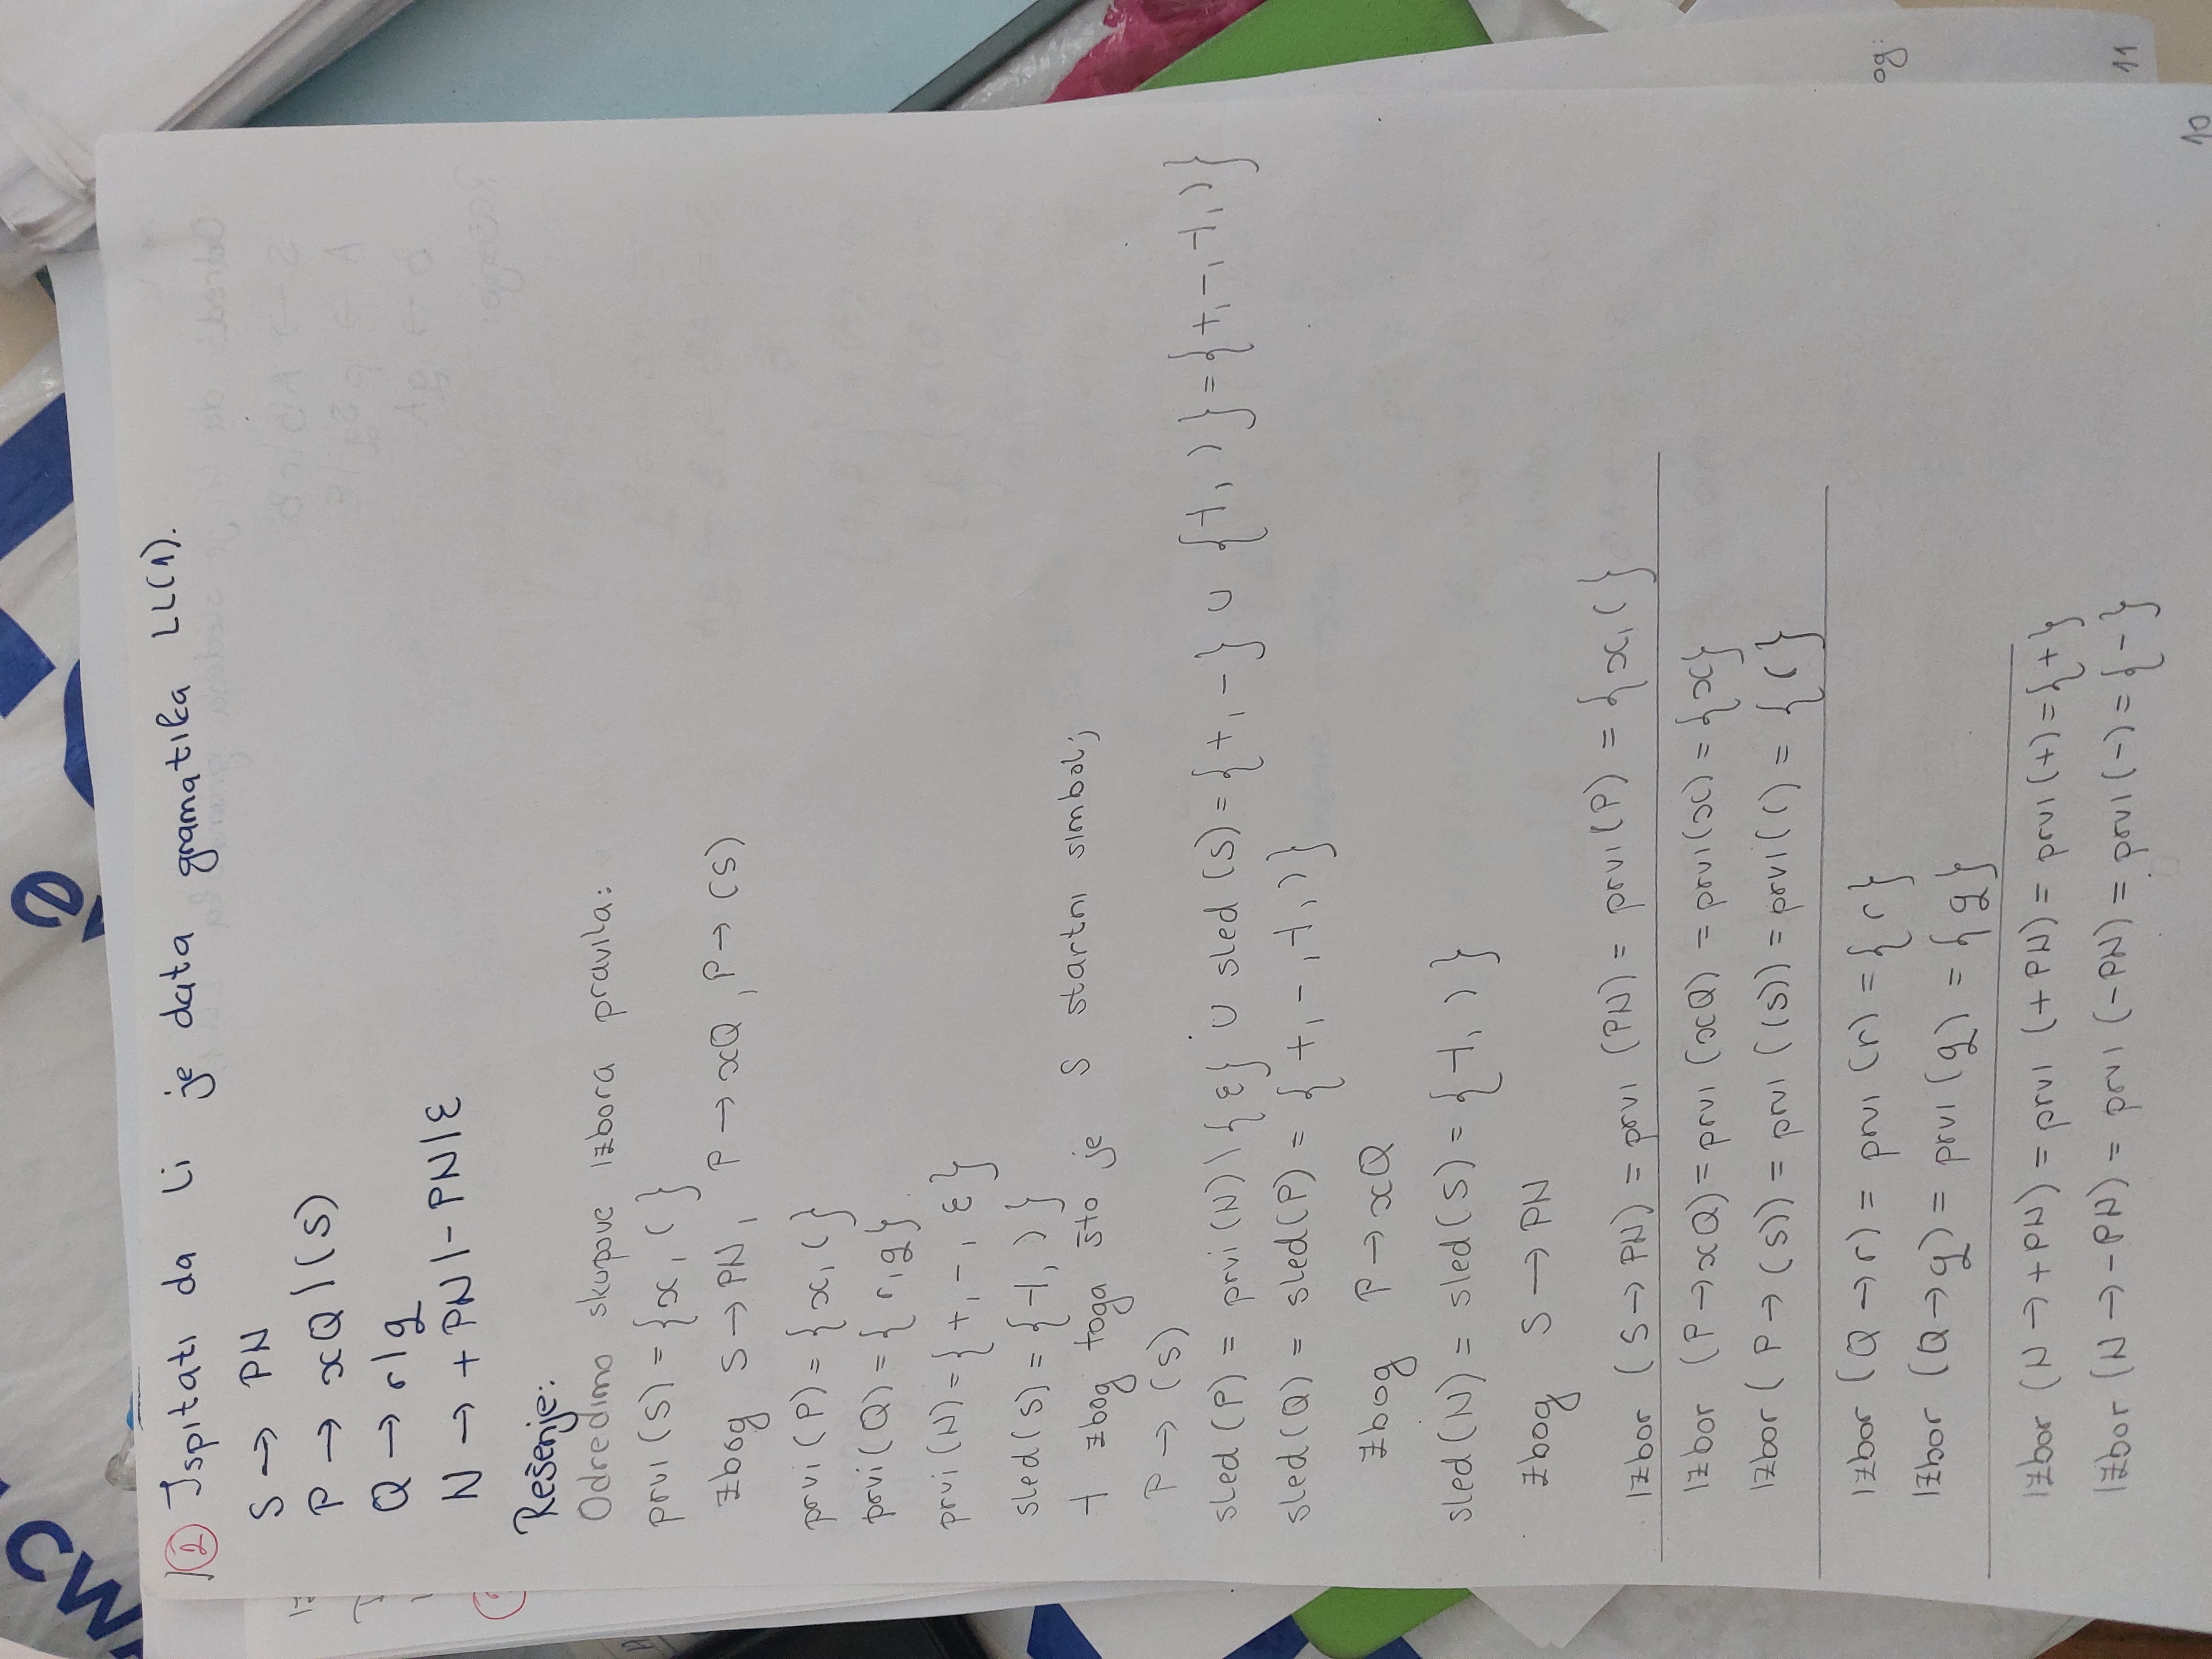 cw
ev
12 Ispitati da li je data gramatika LL(1).
S → PN
P → xQ|(S)
Q → r|q
N → +PN|-PN|ε
Rešenje:
Odredimo skupove izbora pravila:
prvi(S) = {x, (}
zbog S → PN, P → xQ, P → (S)
prvi(P) = {x, (}
prvi(Q) = {r,q}
prvi(N) = {+, -, ε}
sled(S) = {⊣, )}
⊣ zbog toga što je S startni simbol;
P → (S)
sled(P) = prvi(N)\{ε} ∪ sled(S) = {+, -} ∪ {⊣, )} = {+, -, ⊣, )}
sled(Q) = sled(P) = {+, -, ⊣, )}
zbog P → xQ
sled(N) = sled(S) = {⊣, )}
zbog S → PN
Izbor (S → PN) = prvi (PN) = prvi(P) = {x, (}
Izbor (P → xQ) = prvi (xQ) = prvi(x) = {x}
Izbor (P → (S)) = prvi ((S)) = prvi(() = {(}
Izbor (Q → r) = prvi (r) = {r}
Izbor (Q → q) = prvi (q) = {q}
Izbor (N → +PN) = prvi (+PN) = prvi(+) = {+}
Izbor (N → -PN) = prvi (-PN) = prvi(-) = {-}
og:
11
10